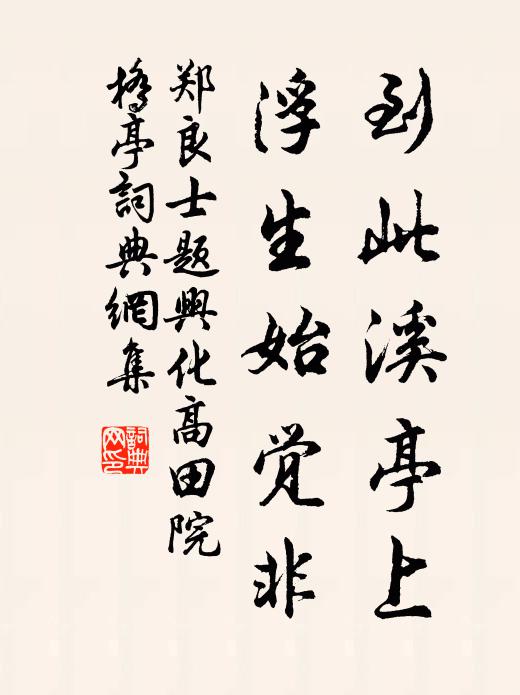 到此溪亭上
浮生始觉非
郑良士题興化高田院
橋亭詞典網集
詞典
网印